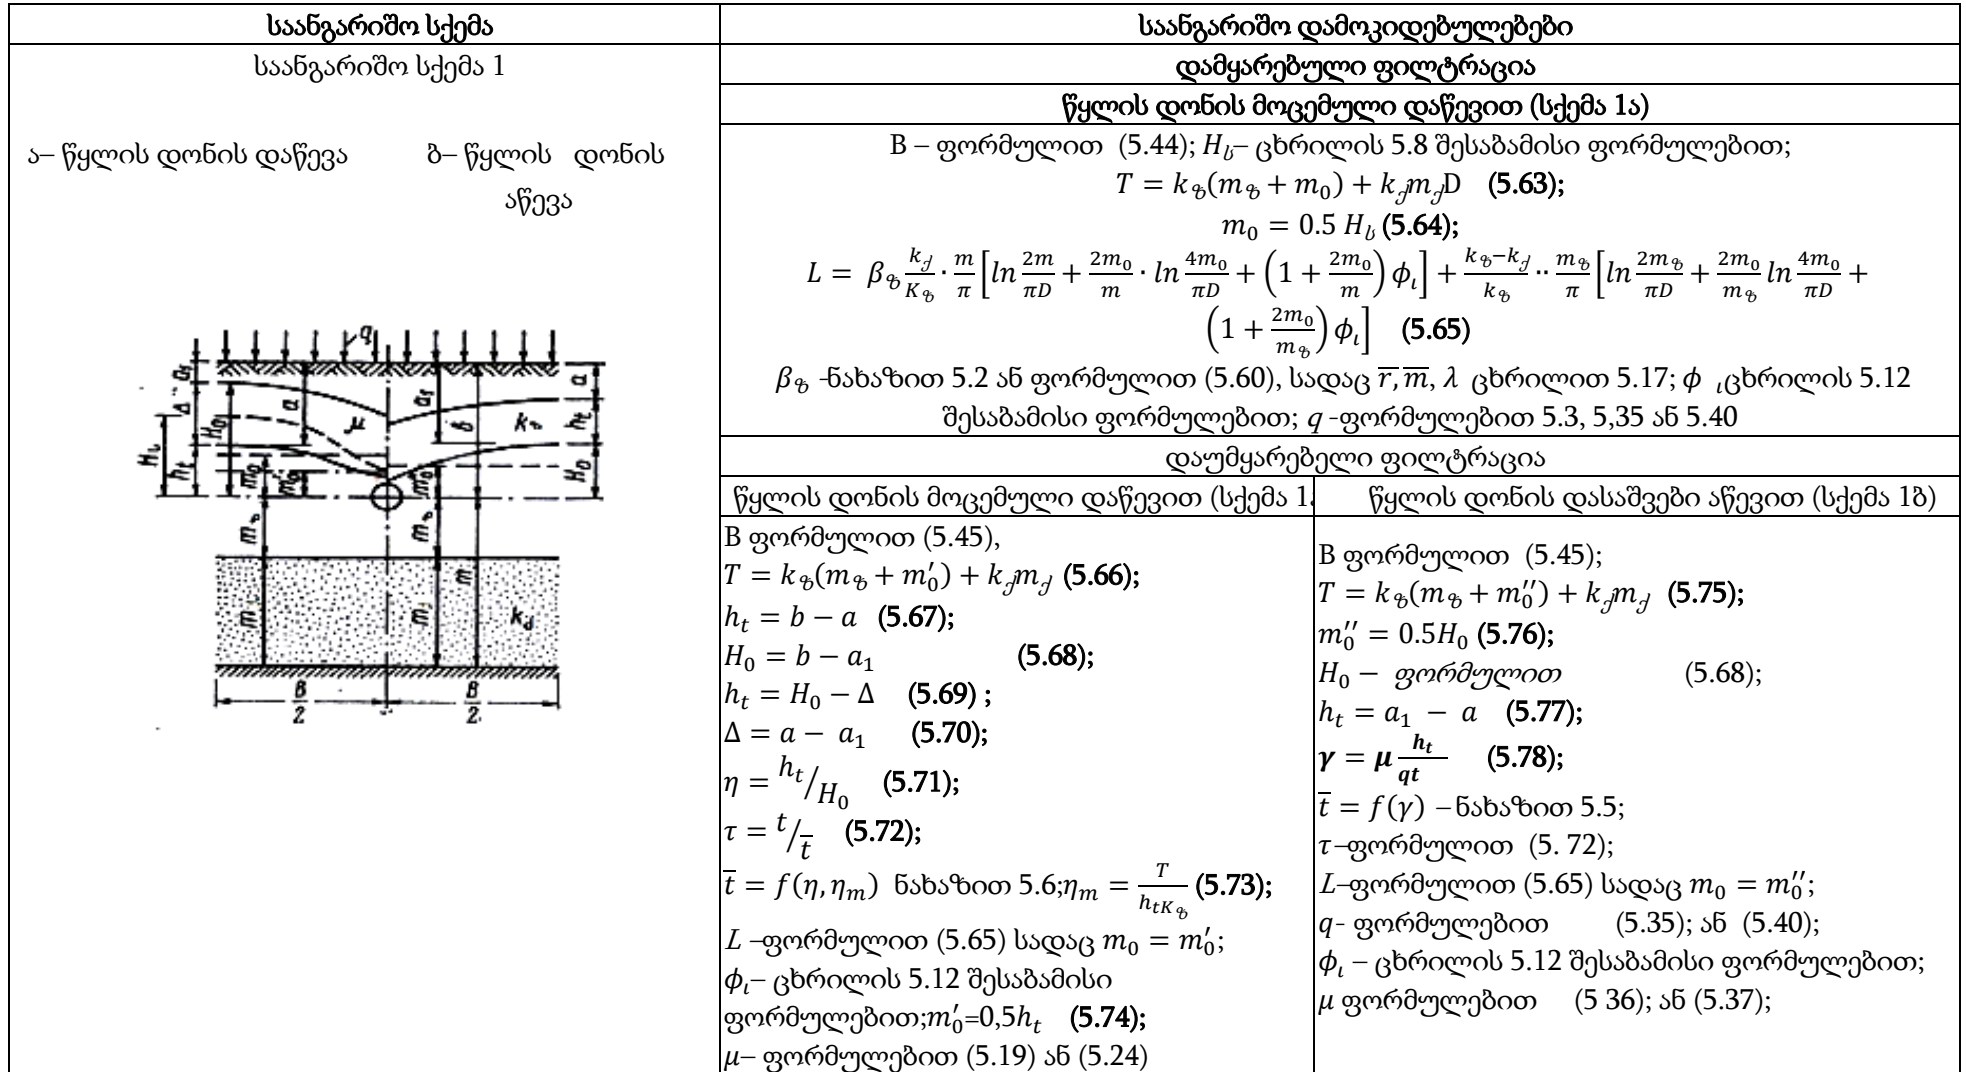 საანგარიშო სქემა
საანგარიშო სქემა 1
ა– წყლის დონის დაწევა ბ– წყლის დონის
აწევა
q
a₁
Δ
H₀
a
μ
a₁
b
a
hₜ
H₀
hₜ
m
B/2
B/2
საანგარიშო დამოკიდებულებები
დამყარებული ფილტრაცია
წყლის დონის მოცემული დაწევით (სქემა 1ა)
B – ფორმულით (5.44); Hₛ– ცხრილის 5.8 შესაბამისი ფორმულებით;
T = k_ზ(m_ზ + m₀) + k_ქm_ქD (5.63);
m₀ = 0.5 H_ს (5.64);
L = β_ზ k_ქ/K_ზ · m/π [ln 2m/πD + 2m₀/m · ln 4m₀/πD + (1 + 2m₀/m) ϕ_ι] + k_ზ−k_ქ/k_ზ ·· m_ზ/π [ln 2m_ზ/πD + 2m₀/m_ზ ln 4m₀/πD +
(1 + 2m₀/m_ზ) ϕ_ι] (5.65)
β_ზ -ნახაზით 5.2 ან ფორმულით (5.60), სადაც r̅,m̅, λ ცხრილით 5.17; ϕ ι ცხრილის 5.12
შესაბამისი ფორმულებით; q -ფორმულებით 5.3, 5,35 ან 5.40
დაუმყარებელი ფილტრაცია
წყლის დონის მოცემული დაწევით (სქემა 1
B ფორმულით (5.45),
T = k_ზ(m_ზ + m₀′) + k_ქm_ქ (5.66);
hₜ = b − a (5.67);
H₀ = b − a₁ (5.68);
hₜ = H₀ − Δ (5.69) ;
Δ = a − a₁ (5.70);
η = hₜ/H₀ (5.71);
τ = t/t̅ (5.72);
t̅ = f(η, η_m) ნახაზით 5.6;η_m = T/h_tK_ზ (5.73);
L –ფორმულით (5.65) სადაც m₀ = m₀′;
ϕ_ι– ცხრილის 5.12 შესაბამისი
ფორმულებით;m₀′=0,5hₜ (5.74);
μ– ფორმულებით (5.19) ან (5.24)
წყლის დონის დასაშვები აწევით (სქემა 1ბ)
B ფორმულით (5.45);
T = k_ზ(m_ზ + m₀″) + k_ქm_ქ (5.75);
m₀″ = 0.5H₀ (5.76);
H₀ − ფორმულით (5.68);
hₜ = a₁ − a (5.77);
γ = μ hₜ/qt (5.78);
t̅ = f(γ) –ნახაზით 5.5;
τ–ფორმულით (5. 72);
L–ფორმულით (5.65) სადაც m₀ = m₀″;
q- ფორმულებით (5.35); ან (5.40);
ϕ_ι – ცხრილის 5.12 შესაბამისი ფორმულებით;
μ ფორმულებით (5 36); ან (5.37);